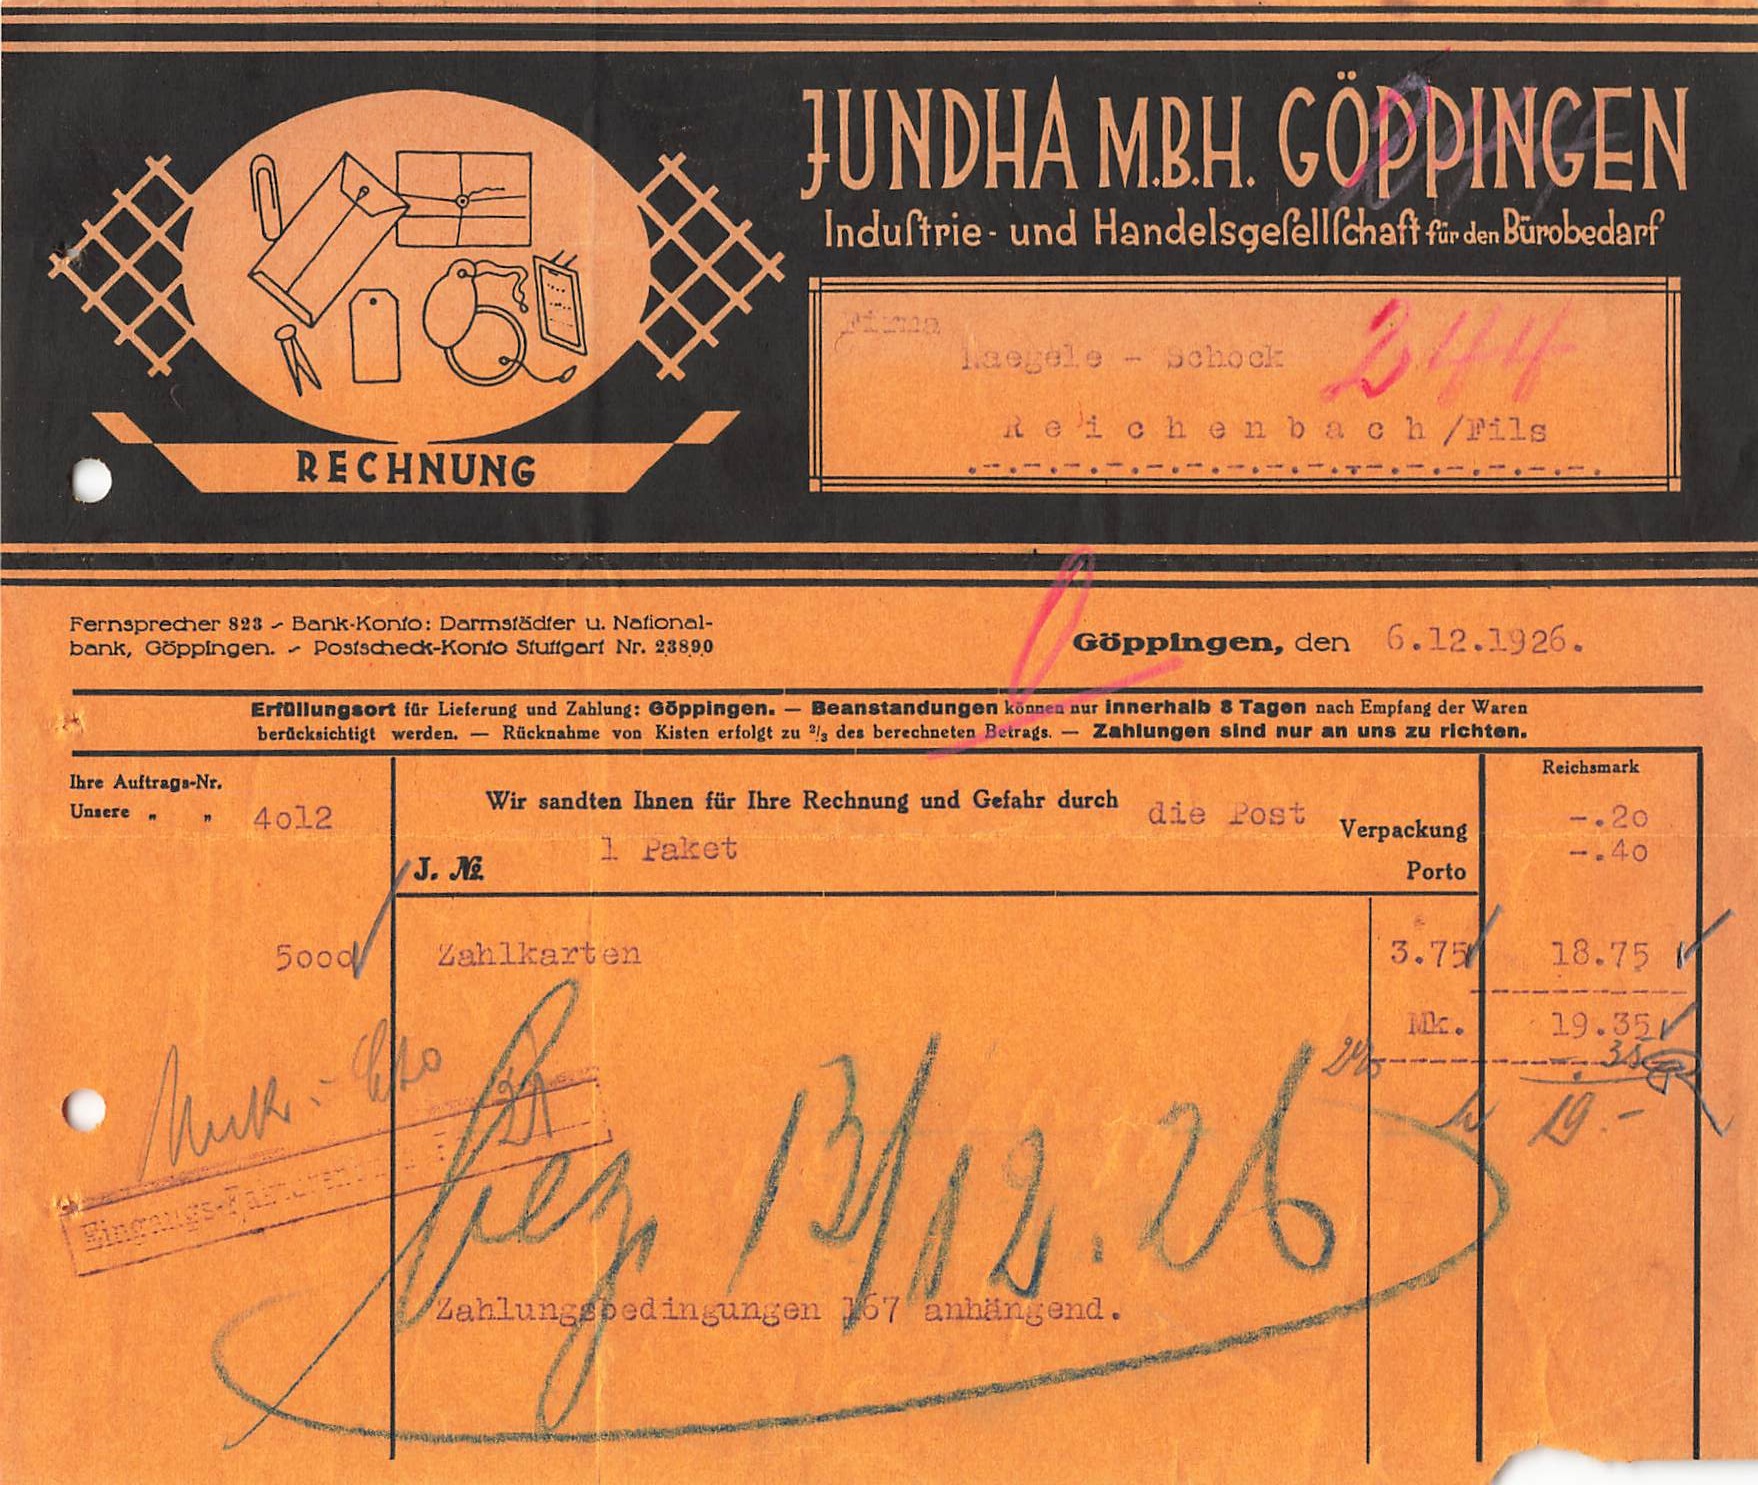 JUNDHA M.B.H. GÖPPINGEN
Induſtrie- und Handelsgeſellſchaft für den Bürobedarf
RECHNUNG
Firma
Naegele - Schock
244
Reichenbach/Fils
Fernsprecher 823 ~ Bank-Konto: Darmstädter u. National-
bank, Göppingen. ~ Postscheck-Konto Stuttgart Nr. 23890
Göppingen, den 6.12.1926.
Erfüllungsort für Lieferung und Zahlung: Göppingen. — Beanstandungen können nur innerhalb 8 Tagen nach Empfang der Waren
berücksichtigt werden. — Rücknahme von Kisten erfolgt zu 2/3 des berechneten Betrags. — Zahlungen sind nur an uns zu richten.
Ihre Auftrags-Nr.
Unsere " " 4012
Wir sandten Ihnen für Ihre Rechnung und Gefahr durch die Post
1 Paket
J. №
Reichsmark
Verpackung -.20
Porto -.40
5000 Zahlkarten 3.75 18.75
Mk. 19.35
2% -.35
19.-
bez 13/12.26
Zahlungsbedingungen 167 anhängend.